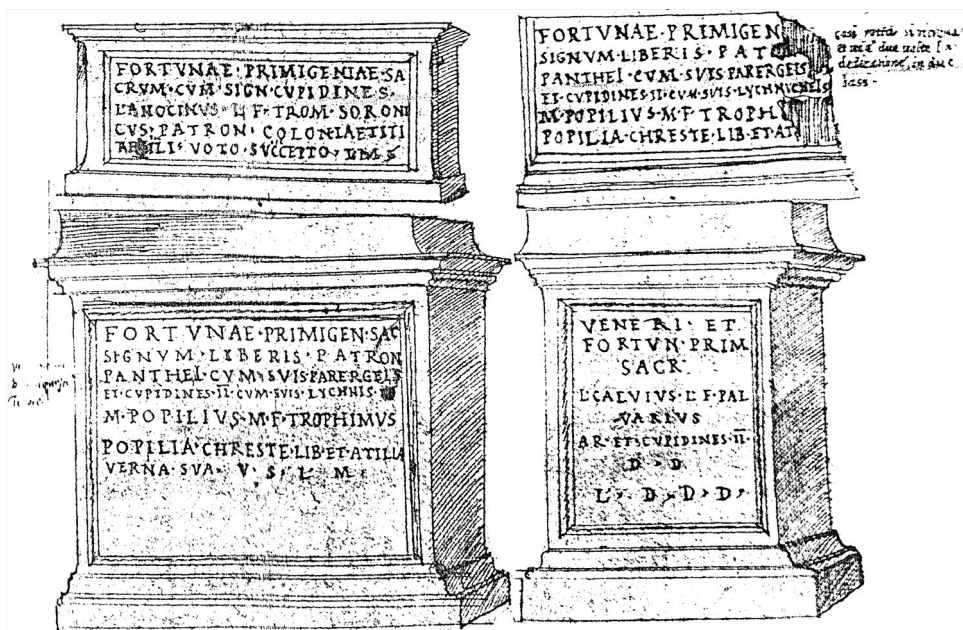 FORTVNAE · PRIMIGENIAE · SA
CRVM · CVM · SIGN · CUPIDINES ·
L · ANOCINUS · L · F · TROM · SORONI
CUS · PATRON · COLONIAE TITI
VOTO · SUCCEPTO ·
FORTVNAE · PRIMIGEN
SIGNVM · LIBERIS · PAT
PANTHEI · CVM · SVIS PARERGEIS
ET · CVPIDINES · II · CVM · SVIS · LYCHNUCHEIS
M · POPILIVS · M · F · TROPH
POPILIA · CHRESTE · LIB · ET · AT
FORTVNAE · PRIMIGEN · SAC
SIGNVM · LIBERIS · PATRON
PANTHEI · CVM · SVIS · PARERGEIS
ET · CVPIDINES · II · CVM · SVIS · LYCHNIS
M · POPILIVS · M · F · TROPHIMVS
POPILIA · CHRESTE · LIB · ET · ATILIA
VERNA · SVA · V · S · L · M ·
VENERI · ET ·
FORTVN · PRIM
SACR
L · CALVIVS · L · F · PAL
VARIVS
AR · ET · CVPIDINES · II ·
D · D
L · D · D · D ·